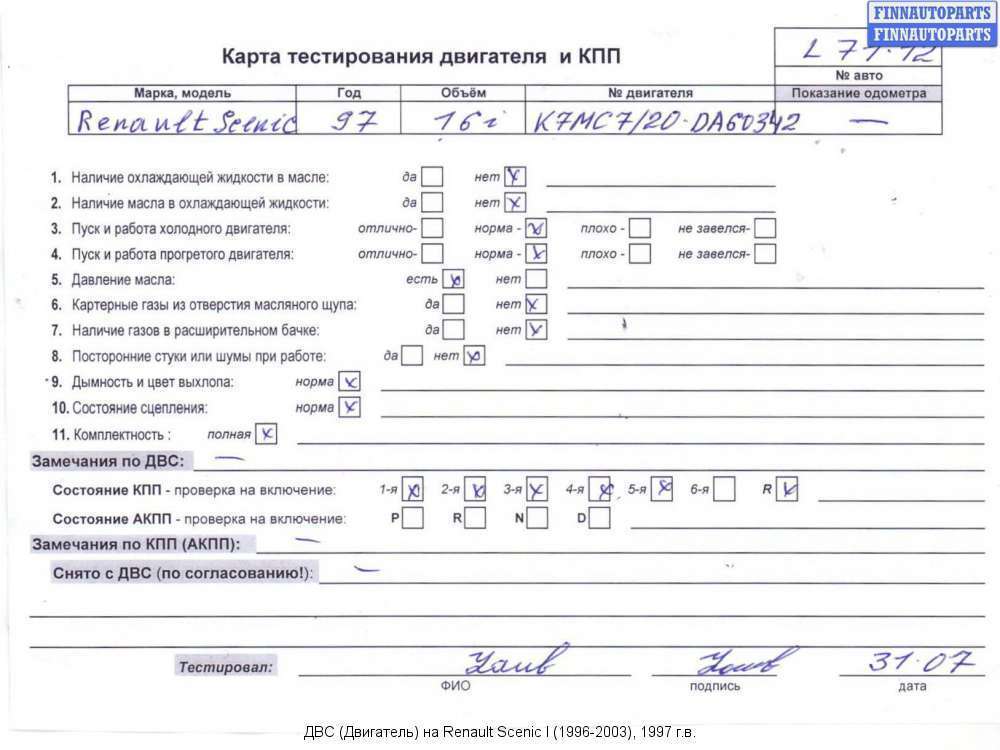 FINNAUTOPARTS
FINNAUTOPARTS
Карта тестирования двигателя и КПП
L 71-12
№ авто
Марка, модель Год Объём № двигателя Показание одометра
Renault Scenic 97 16i K7MC7/20-DA60342 —
1. Наличие охлаждающей жидкости в масле: да нет x
2. Наличие масла в охлаждающей жидкости: да нет x
3. Пуск и работа холодного двигателя: отлично- норма - x плохо - не завелся-
4. Пуск и работа прогретого двигателя: отлично- норма - x плохо - не завелся-
5. Давление масла: есть x нет
6. Картерные газы из отверстия масляного щупа: да нет x
7. Наличие газов в расширительном бачке: да нет x
8. Посторонние стуки или шумы при работе: да нет x
9. Дымность и цвет выхлопа: норма x
10. Состояние сцепления: норма x
11. Комплектность : полная x
Замечания по ДВС: —
Состояние КПП - проверка на включение: 1-я x 2-я x 3-я x 4-я x 5-я x 6-я R x
Состояние АКПП - проверка на включение: P R N D
Замечания по КПП (АКПП): —
Снято с ДВС (по согласованию!): —
Тестировал: 31.07
ФИО подпись дата
ДВС (Двигатель) на Renault Scenic I (1996-2003), 1997 г.в.